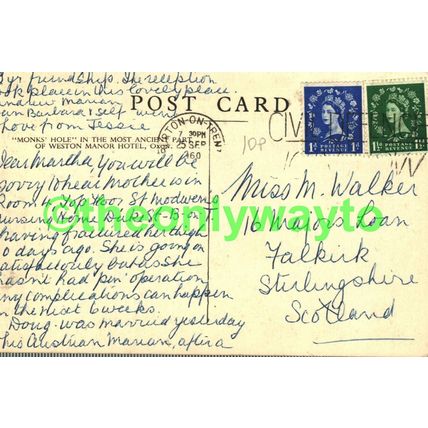 3 yr friendship. The reception
took place in this lovely place.
Marian
Barbara & self
Love from Jessie
POST CARD
"MONKS' HOLE" IN THE MOST ANCIENT PART
OF WESTON MANOR HOTEL,
Dear Martha, You will be
sorry to hear mother is in
Room 4 Top Floor St Modwens
Nursing Home
having fractured her thigh
10 days ago. She is going on
satisfactorily but as she
hasn't had 'pin' operation
any complications can happen
in the next 6 weeks.
Doug. was married yesterday
his Austrian Marian, after a
BURTON-ON-TRENT
7 30PM
25 SEP
1960
10p
1D POSTAGE REVENUE 1D
1½D POSTAGE REVENUE 1½D
Miss M. Walker
16 Majors Loan
Falkirk
Stirlingshire
Scotland
©theonlywayto